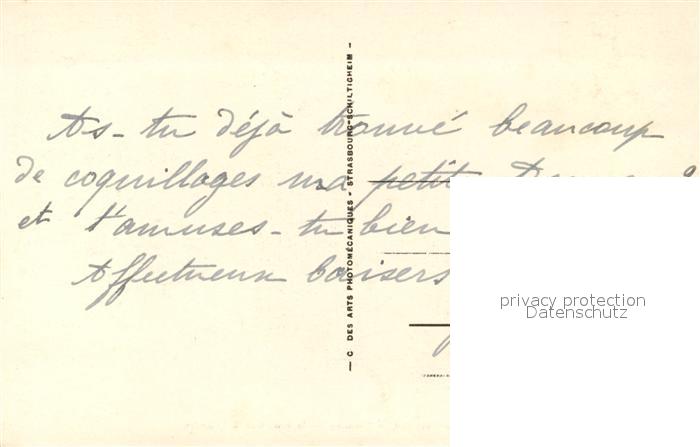 As-tu déjà trouvé beaucoup
de coquillages ma petite ?
et t'amuses-tu bien
Affectueux baisers
— C DES ARTS PHOTOMÉCANIQUES - STRASBOURG-SCHILTIGHEIM —
privacy protection
Datenschutz